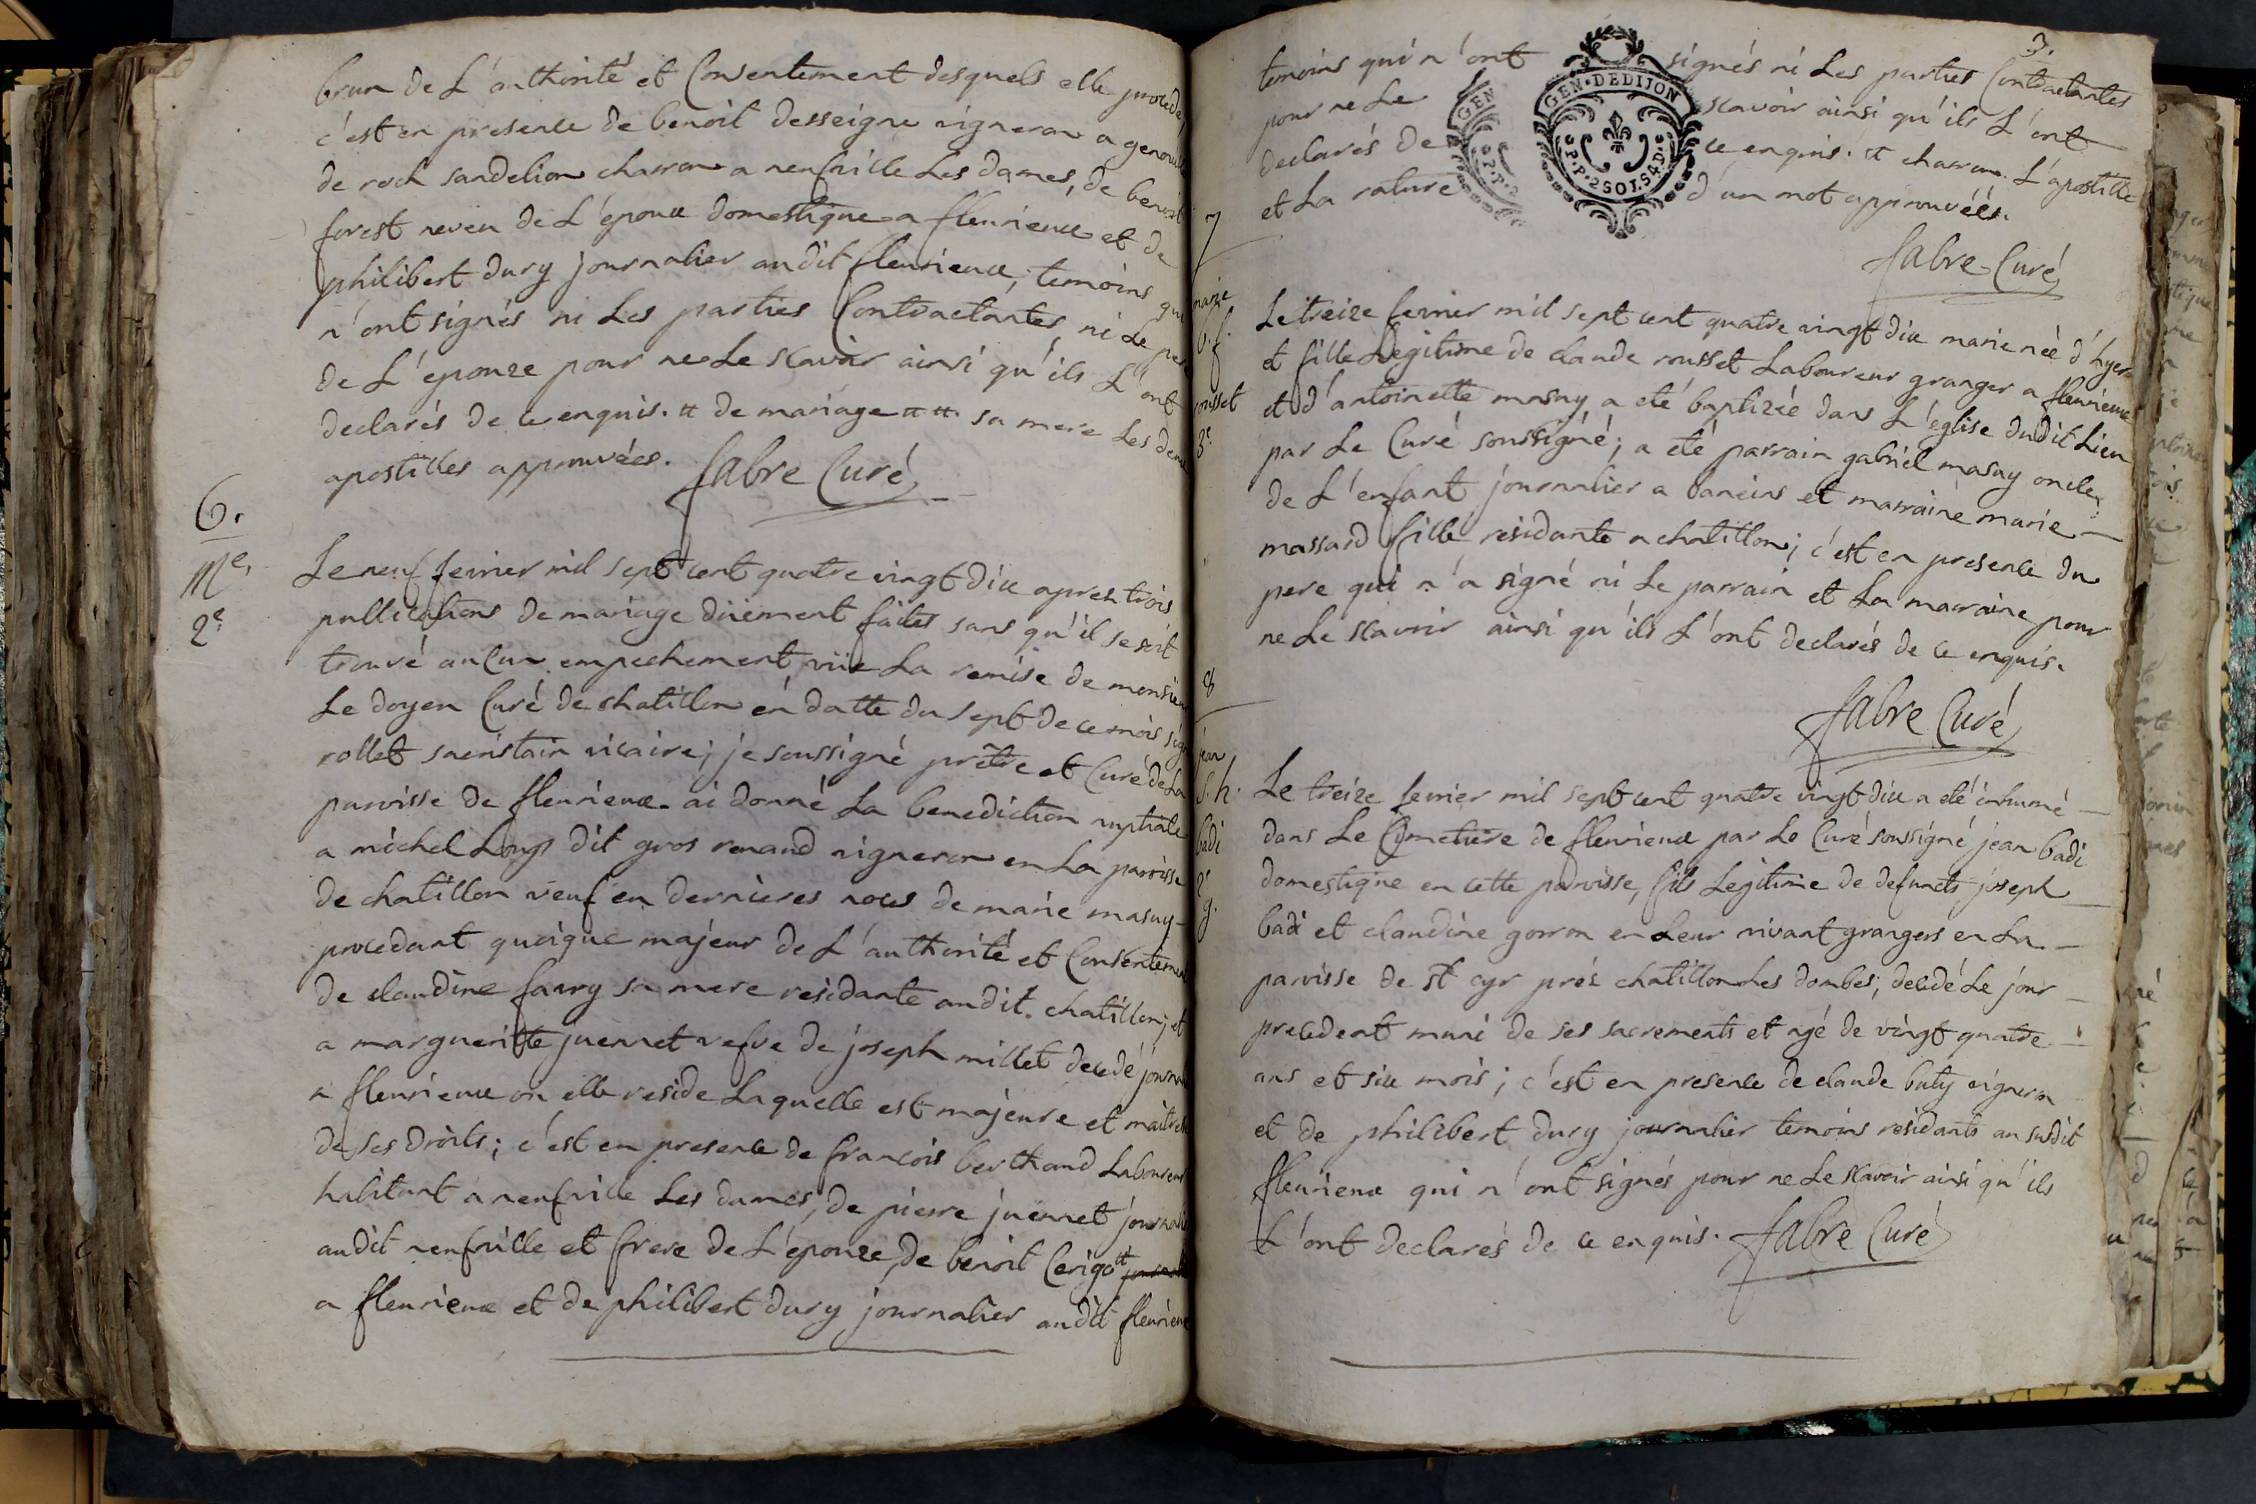 brun de L'authorité et Consentement desquels elle procede,
c'est en presence de benoit desseigne vigneron a genouill
de roch sandelion charron a neufville Les dames, de benoit
forest neveu de L'epoux domestique a fleurieux et de
philibert dury journalier audit fleurieux, temoins qui
n'ont signés ni Les parties Contractantes ni Le pere
de L'epouze pour ne Le scavoir ainsi qu'ils L'ont
declarés de ce enquis. tt de mariage tt tt sa mere Les deux
apostilles approuvées. fabre Curé
6.
Me.
2e.
Le neuf fevrier mil sept cent quatre vingt dix apres trois
publications de mariage düement faites sans qu'il se soit
trouvé aucun empechement, vüe La remise de monsieur
Le doyen Curé de chatillon en datte du sept de ce mois sign
rollet sacristain vicaire; je soussigné prêtre et Curé de La
paroisse de fleurieux ai donné La benediction nuptiale
a michel Loup dit gros renaud vigneron en La paroisse
de chatillon veuf en dernieres noces de marie masuy
procedant quoique majeur de L'authorité et Consentement
de claudine favry sa mere residante audit chatillon; et
a margueritte juennet vefve de joseph millet decedé journ
a fleurieux ou elle reside Laquelle est majeure et maitresse
de ses droits; c'est en presence de francois berthaud Laboureur
habitant a neufville Les dames, de pierre juennet journalier
audit neufville et frere de L'epouze, de benoit Cerigo tt
a fleurieux et de philibert dury journalier audit fleurieux
3.
temoins qui n'ont signés ni Les parties Contractantes
pour ne Le scavoir ainsi qu'ils L'ont
declarés de ce enquis. tt charron. L'apostille
et La rature d'un mot approuvées.
GEN·DEDIJON
P.P. 2 SOLS 4 D.
GEN
P.P. 2
fabre Curé
7
marie
b. f.
rousset
3e.
Le treize fevrier mil sept cent quatre vingt dix marie née d'hyer
et fille Legitime de claude rousset Laboureur granger a fleurieux
et d'antoinette masuy a eté baptizée dans L'église dudit Lieu
par Le Curé soussigné; a eté parrain gabriel masuy oncle
de L'enfant journalier a baneins et marraine marie
massard fille residante a chatillon; c'est en presence du
pere qui n'a signé ni Le parrain et La marraine pour
ne Le scavoir ainsi qu'ils L'ont declarés de ce enquis.
fabre Curé
8
jean
s. h.
badi
2e
g.
Le treize fevrier mil sept cent quatre vingt dix a eté inhumé
dans Le Cymetiere de fleurieux par Le Curé soussigné jean badi
domestique en cette paroisse, fils Legitime de defuncts joseph
badi et claudine gorron en Leur vivant grangers en La
paroisse de st cyr prés chatillon Les dombes; decedé Le jour
precedent muni de ses sacrements et agé de vingt quatre
ans et six mois; c'est en presence de claude buty vigneron
et de philibert dury journalier temoins residants au susdit
fleurieux qui n'ont signés pour ne Le scavoir ainsi qu'ils
L'ont declarés de ce enquis. fabre Curé